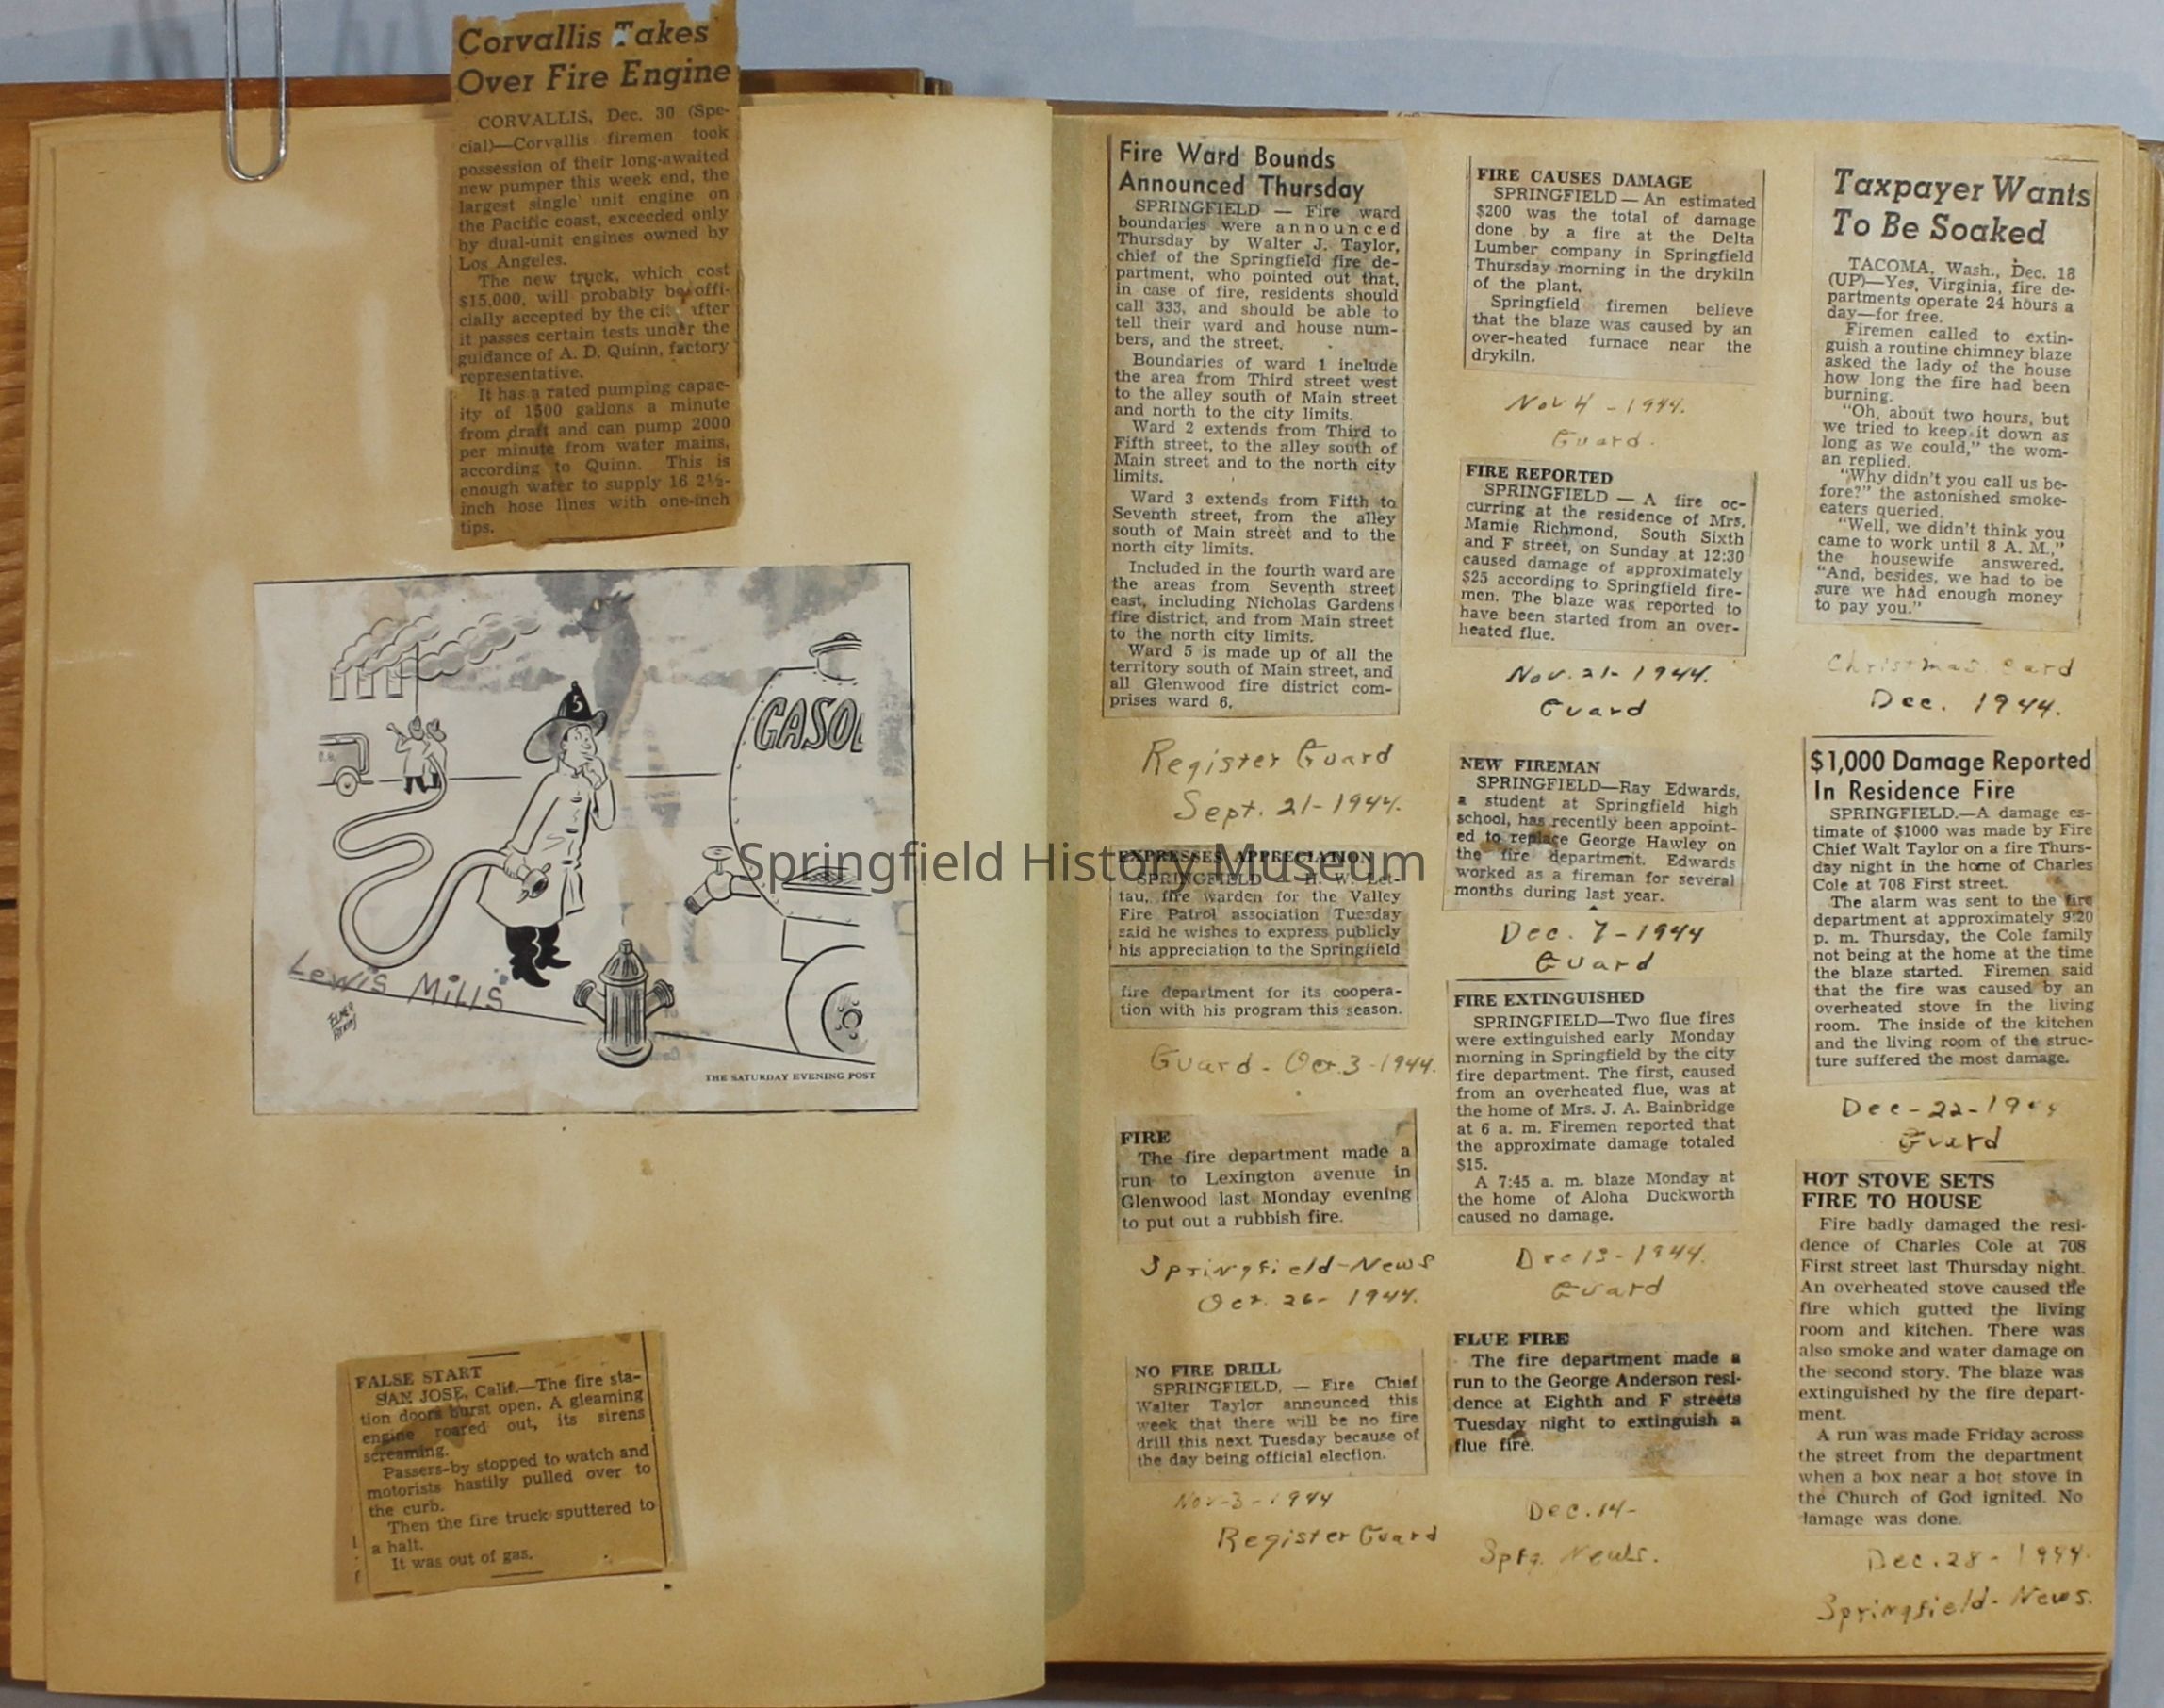 Corvallis Takes
Over Fire Engine
CORVALLIS, Dec. 30 (Spe-
cial)—Corvallis firemen took
possession of their long-awaited
new pumper this week end, the
largest single unit engine on
the Pacific coast, exceeded only
by dual-unit engines owned by
Los Angeles.
The new truck, which cost
$15,000, will probably be offi-
cially accepted by the city after
it passes certain tests under the
guidance of A. D. Quinn, factory
representative.
It has a rated pumping capac-
ity of 1500 gallons a minute
from draft and can pump 2000
per minute from water mains,
according to Quinn. This is
enough water to supply 16 2½-
inch hose lines with one-inch
tips.
5
GASOL
Lewis Mills
THE SATURDAY EVENING POST
FALSE START
SAN JOSE, Calif.—The fire sta-
tion doors burst open. A gleaming
engine roared out, its sirens
screaming.
Passers-by stopped to watch and
motorists hastily pulled over to
the curb.
Then the fire truck sputtered to
a halt.
It was out of gas.
Fire Ward Bounds
Announced Thursday
SPRINGFIELD — Fire ward
boundaries were announced
Thursday by Walter J. Taylor,
chief of the Springfield fire de-
partment, who pointed out that,
in case of fire, residents should
call 333, and should be able to
tell their ward and house num-
bers, and the street.
Boundaries of ward 1 include
the area from Third street west
to the alley south of Main street
and north to the city limits.
Ward 2 extends from Third to
Fifth street, to the alley south of
Main street and to the north city
limits.
Ward 3 extends from Fifth to
Seventh street, from the alley
south of Main street and to the
north city limits.
Included in the fourth ward are
the areas from Seventh street
east, including Nicholas Gardens
fire district, and from Main street
to the north city limits.
Ward 5 is made up of all the
territory south of Main street, and
all Glenwood fire district com-
prises ward 6.
Register Guard
Sept. 21-1944.
EXPRESSES APPRECIATION
SPRINGFIELD — H. W. Let-
tau, fire warden for the Valley
Fire Patrol association Tuesday
said he wishes to express publicly
his appreciation to the Springfield
fire department for its coopera-
tion with his program this season.
Guard - Oct. 3 - 1944.
FIRE
The fire department made a
run to Lexington avenue in
Glenwood last Monday evening
to put out a rubbish fire.
Springfield-News
Oct. 26- 1944.
NO FIRE DRILL
SPRINGFIELD, — Fire Chief
Walter Taylor announced this
week that there will be no fire
drill this next Tuesday because of
the day being official election.
Nov-3-1944
Register Guard
FIRE CAUSES DAMAGE
SPRINGFIELD — An estimated
$200 was the total of damage
done by a fire at the Delta
Lumber company in Springfield
Thursday morning in the drykiln
of the plant.
Springfield firemen believe
that the blaze was caused by an
over-heated furnace near the
drykiln.
Nov 4 - 1944.
Guard.
FIRE REPORTED
SPRINGFIELD — A fire oc-
curring at the residence of Mrs.
Mamie Richmond, South Sixth
and F street, on Sunday at 12:30
caused damage of approximately
$25 according to Springfield fire-
men. The blaze was reported to
have been started from an over-
heated flue.
Nov. 21- 1944.
Guard
NEW FIREMAN
SPRINGFIELD—Ray Edwards,
a student at Springfield high
school, has recently been appoint-
ed to replace George Hawley on
the fire department. Edwards
worked as a fireman for several
months during last year.
Dec. 7-1944
Guard
FIRE EXTINGUISHED
SPRINGFIELD—Two flue fires
were extinguished early Monday
morning in Springfield by the city
fire department. The first, caused
from an overheated flue, was at
the home of Mrs. J. A. Bainbridge
at 6 a. m. Firemen reported that
the approximate damage totaled
$15.
A 7:45 a. m. blaze Monday at
the home of Aloha Duckworth
caused no damage.
Dec 13-1944.
Guard
FLUE FIRE
The fire department made a
run to the George Anderson resi-
dence at Eighth and F streets
Tuesday night to extinguish a
flue fire.
Dec. 14-
Spfg. News.
Taxpayer Wants
To Be Soaked
TACOMA, Wash., Dec. 18
(UP)—Yes, Virginia, fire de-
partments operate 24 hours a
day—for free.
Firemen called to extin-
guish a routine chimney blaze
asked the lady of the house
how long the fire had been
burning.
"Oh, about two hours, but
we tried to keep it down as
long as we could," the wom-
an replied.
"Why didn't you call us be-
fore?" the astonished smoke-
eaters queried.
"Well, we didn't think you
came to work until 8 A. M.,"
the housewife answered.
"And, besides, we had to be
sure we had enough money
to pay you."
Christmas Card
Dec. 1944.
$1,000 Damage Reported
In Residence Fire
SPRINGFIELD.—A damage es-
timate of $1000 was made by Fire
Chief Walt Taylor on a fire Thurs-
day night in the home of Charles
Cole at 708 First street.
The alarm was sent to the fire
department at approximately 9:20
p. m. Thursday, the Cole family
not being at the home at the time
the blaze started. Firemen said
that the fire was caused by an
overheated stove in the living
room. The inside of the kitchen
and the living room of the struc-
ture suffered the most damage.
Dec-22-1944
Guard
HOT STOVE SETS
FIRE TO HOUSE
Fire badly damaged the resi-
dence of Charles Cole at 708
First street last Thursday night.
An overheated stove caused the
fire which gutted the living
room and kitchen. There was
also smoke and water damage on
the second story. The blaze was
extinguished by the fire depart-
ment.
A run was made Friday across
the street from the department
when a box near a hot stove in
the Church of God ignited. No
damage was done.
Dec. 28- 1944.
Springfield- News.
Springfield History Museum